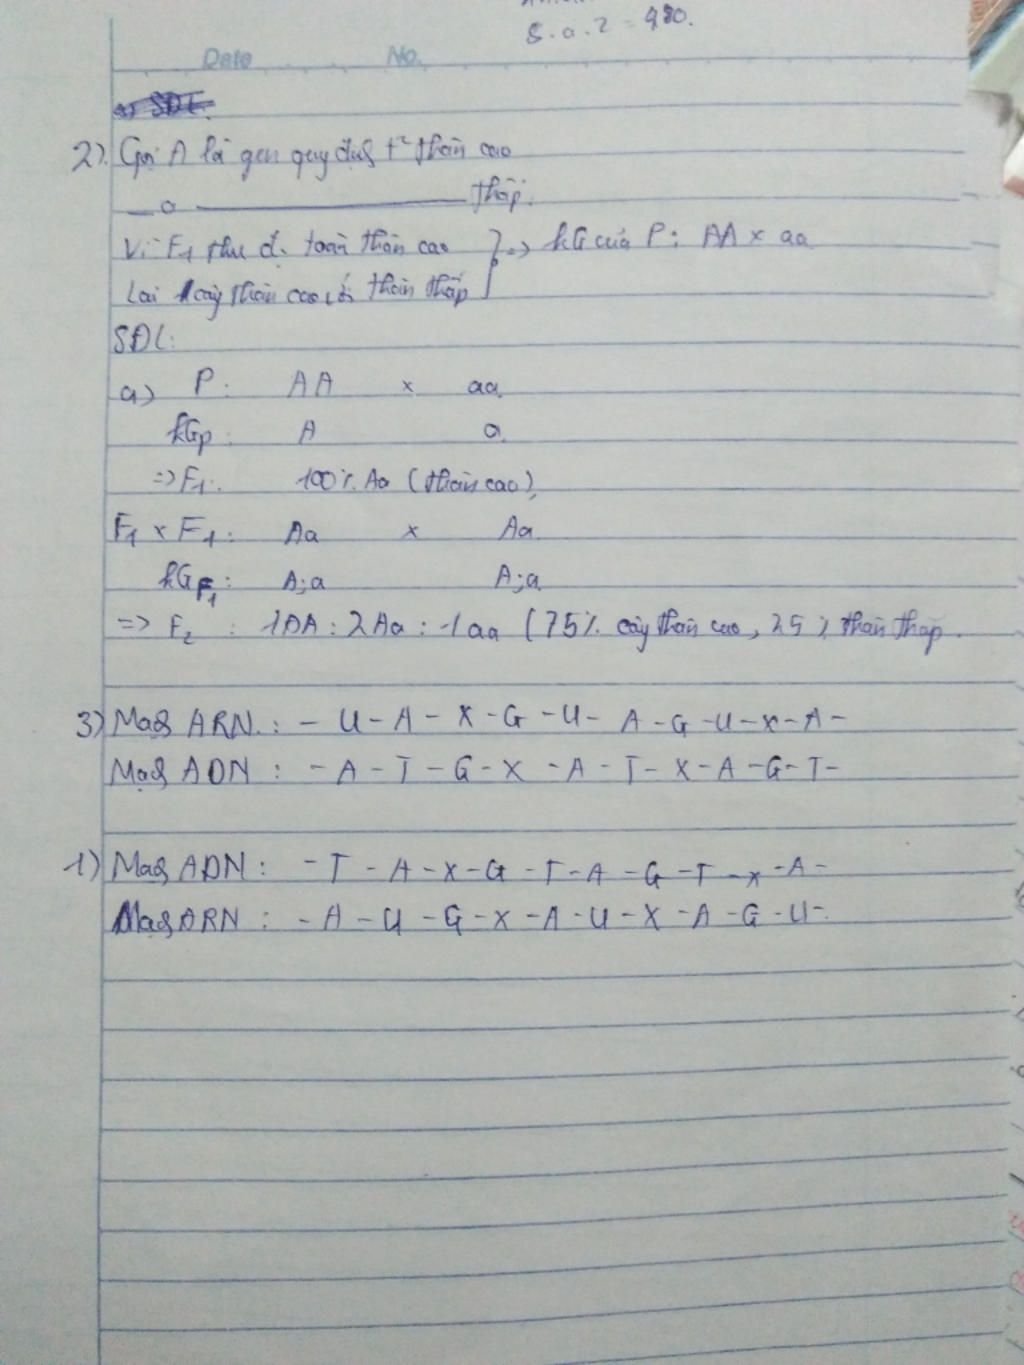 S.a.2 = 980.
Date No.
a) SDL
2). Gọi A là gen quy địng t² thân cao
— a ——— thấp.
Vì F1 thu đc toàn thân cao } => kG của P: AA x aa
Lai 1 cây thân cao với thân thấp
SĐL:
a) P: AA x aa
kGp: A a
=> F1: 100% Aa (thân cao)
F1 x F1: Aa x Aa
kGF1: A;a A;a
=> F2 : 1AA : 2Aa : 1aa (75% cây thân cao, 25% thân thấp.
3) Mạg ARN : - U - A - X - G - U - A - G - U - X - A -
Mạg ADN : - A - T - G - X - A - T - X - A - G - T -
1) Mạg ADN : - T - A - X - G - T - A - G - T - X - A -
Mạg ARN : - A - U - G - X - A - U - X - A - G - U -